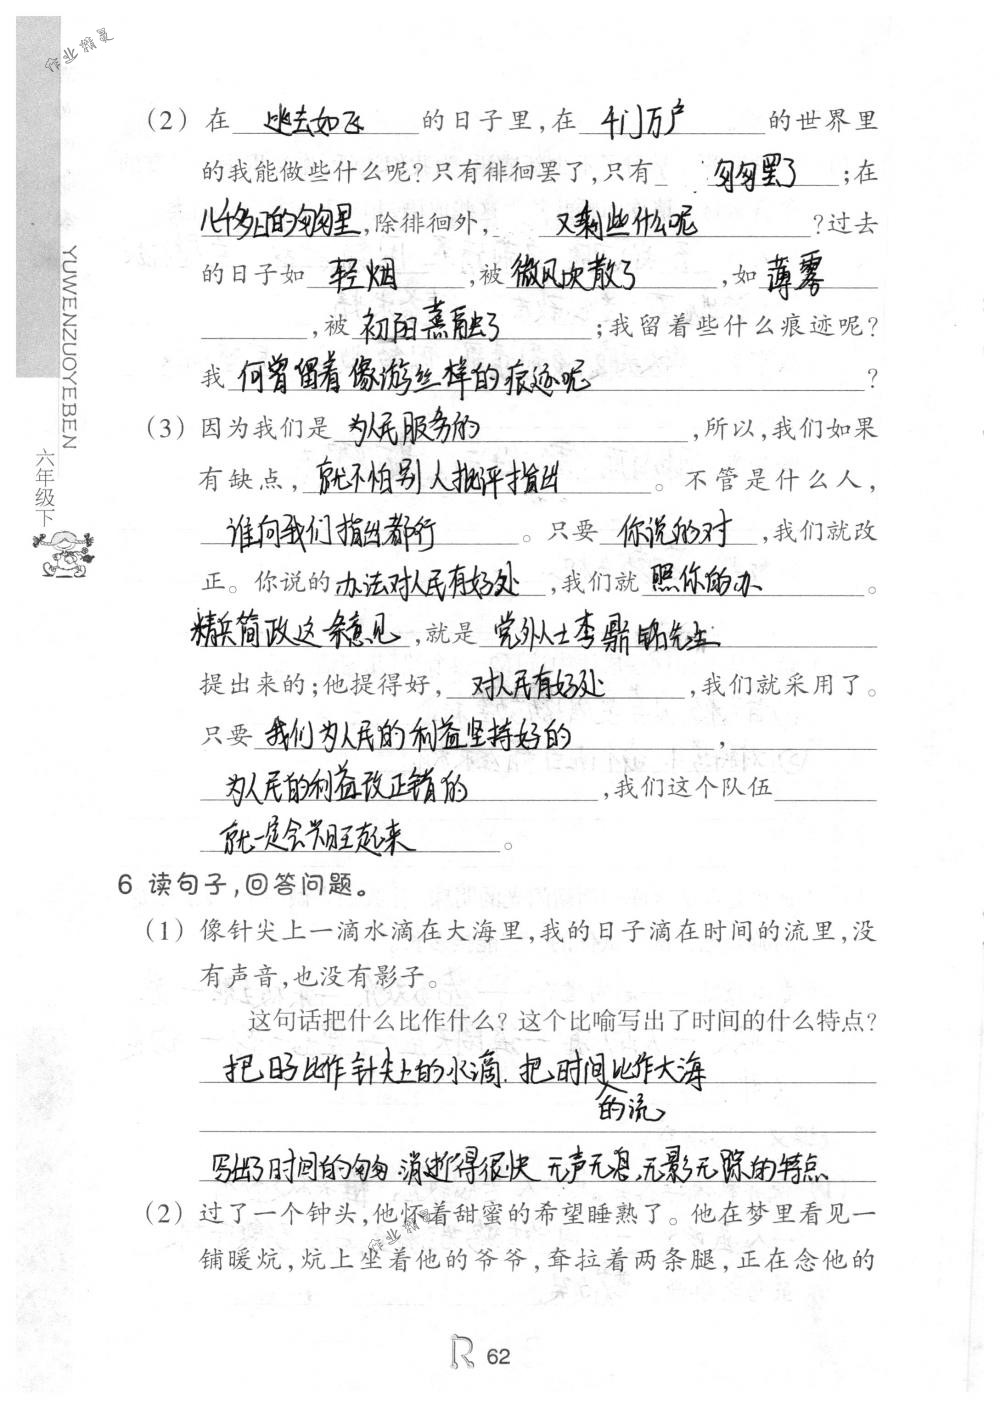 作业精灵
YUWENZUOYEBEN
六年级下
(2) 在 逃去如飞 的日子里,在 千门万户 的世界里
的我能做些什么呢?只有徘徊罢了,只有 匆匆罢了 ;在
八千多日的匆匆里,除徘徊外, 又剩些什么呢 ?过去
的日子如 轻烟 ,被 微风吹散了 ,如 薄雾
,被 初阳蒸融了 ;我留着些什么痕迹呢?
我 何曾留着像游丝样的痕迹呢 ?
(3) 因为我们是 为人民服务的 ,所以,我们如果
有缺点, 就不怕别人批评指出 。不管是什么人,
谁向我们指出都行 。只要 你说的对 ,我们就改
正。你说的 办法对人民有好处 ,我们就 照你的办 。
精兵简政这条意见 ,就是 党外人士李鼎铭先生
提出来的;他提得好, 对人民有好处 ,我们就采用了。
只要 我们为人民的利益坚持好的 ,
为人民的利益改正错的 ,我们这个队伍
就一定会兴旺起来 。
6 读句子,回答问题。
(1) 像针尖上一滴水滴在大海里,我的日子滴在时间的流里,没
有声音,也没有影子。
这句话把什么比作什么?这个比喻写出了时间的什么特点?
把日子比作针尖上的水滴.把时间比作大海
的流
写出了时间的匆匆.消逝得很快 无声无息、无影无踪的特点
(2) 过了一个钟头,他怀着甜蜜的希望睡熟了。他在梦里看见一
作业精灵
铺暖炕,炕上坐着他的爷爷,耷拉着两条腿,正在念他的
R 62